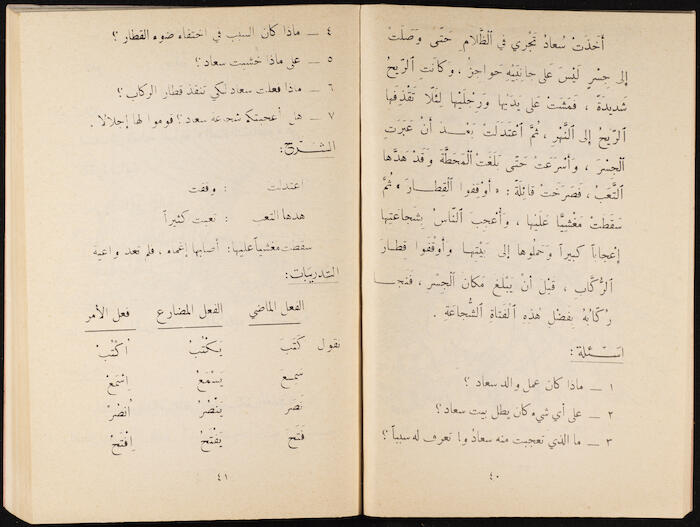 أَخَذَتْ سُعادُ تَجْري في الظَّلامِ حَتَّى وَصَلَتْ
إلى جِسْرٍ لَيْسَ عَلى جانِبَيْهِ حَواجِزُ ، وَكانَتِ الرِّيحُ
شَديدَةً ، فَمَشَتْ عَلى يَدَيْها وَرِجْلَيْها لِئَلَّا تَقْذِفَها
الرِّيحُ إلى النَّهْرِ ، ثُمَّ اَعْتَدَلَتْ بَعْدَ أَنْ عَبَرَتِ
الْجِسْرَ ، وَأَسْرَعَتْ حَتَّى بَلَغَتْ الْمَحَطَّةَ وَقَدْ هَدَّها
التَّعَبُ ، فَصَرَخَتْ قائِلَةً : « أَوْقِفوا الْقِطارَ » ثُمَّ
سَقَطَتْ مَغْشِيّاً عَلَيْها ، وَأُعْجِبَ النّاسُ بِشَجاعَتِها
إعْجاباً كَبيراً وَحَمَلُوها إلى بَيْتِها وَأَوْقَفوا قِطارَ
الرُّكَّابِ ، قَبْلَ أَنْ يَبْلُغَ مَكانَ الْجِسْرِ ، فَنَجا
رُكّابُهُ بِفَضْلِ هٰذِهِ الْفَتاةِ الشُّجاعَةِ .
اسْئلة :
١ ــ ماذا كان عمل والد سعاد ؟
٢ ــ على أي شيء كان يطل بيت سعاد ؟
٣ ــ ما الذي تعجبت منه سعاد ولم تعرف له سبباً ؟
٤٠
٤ ــ ماذا كان السبب في اختفاء ضوء القطار ؟
٥ ــ على ماذا خشيت سعاد ؟
٦ ــ ماذا فعلت سعاد لكي تنقذ قطار الركاب ؟
٧ ــ هل أعجبتكم شجاعة سعاد ؟ قوموا لها إجلالا .
الشرح :
اعتدلت : وقفت
هدها التعب : تعبت كثيراً
سقطت مغشياً عليها : أصابها إغماء ، فلم تعد واعية
التدريبات :
الفعل الماضي الفعل المضارع فعل الأمر
نقول كَتَبَ يَكْتُبُ اُكْتُبْ
سمِعَ يَسْمَعُ اِسْمَعْ
نَصَرَ يَنْصُرُ اُنْصُرْ
فَتَحَ يَفْتَحُ اِفْتَحْ
٤١